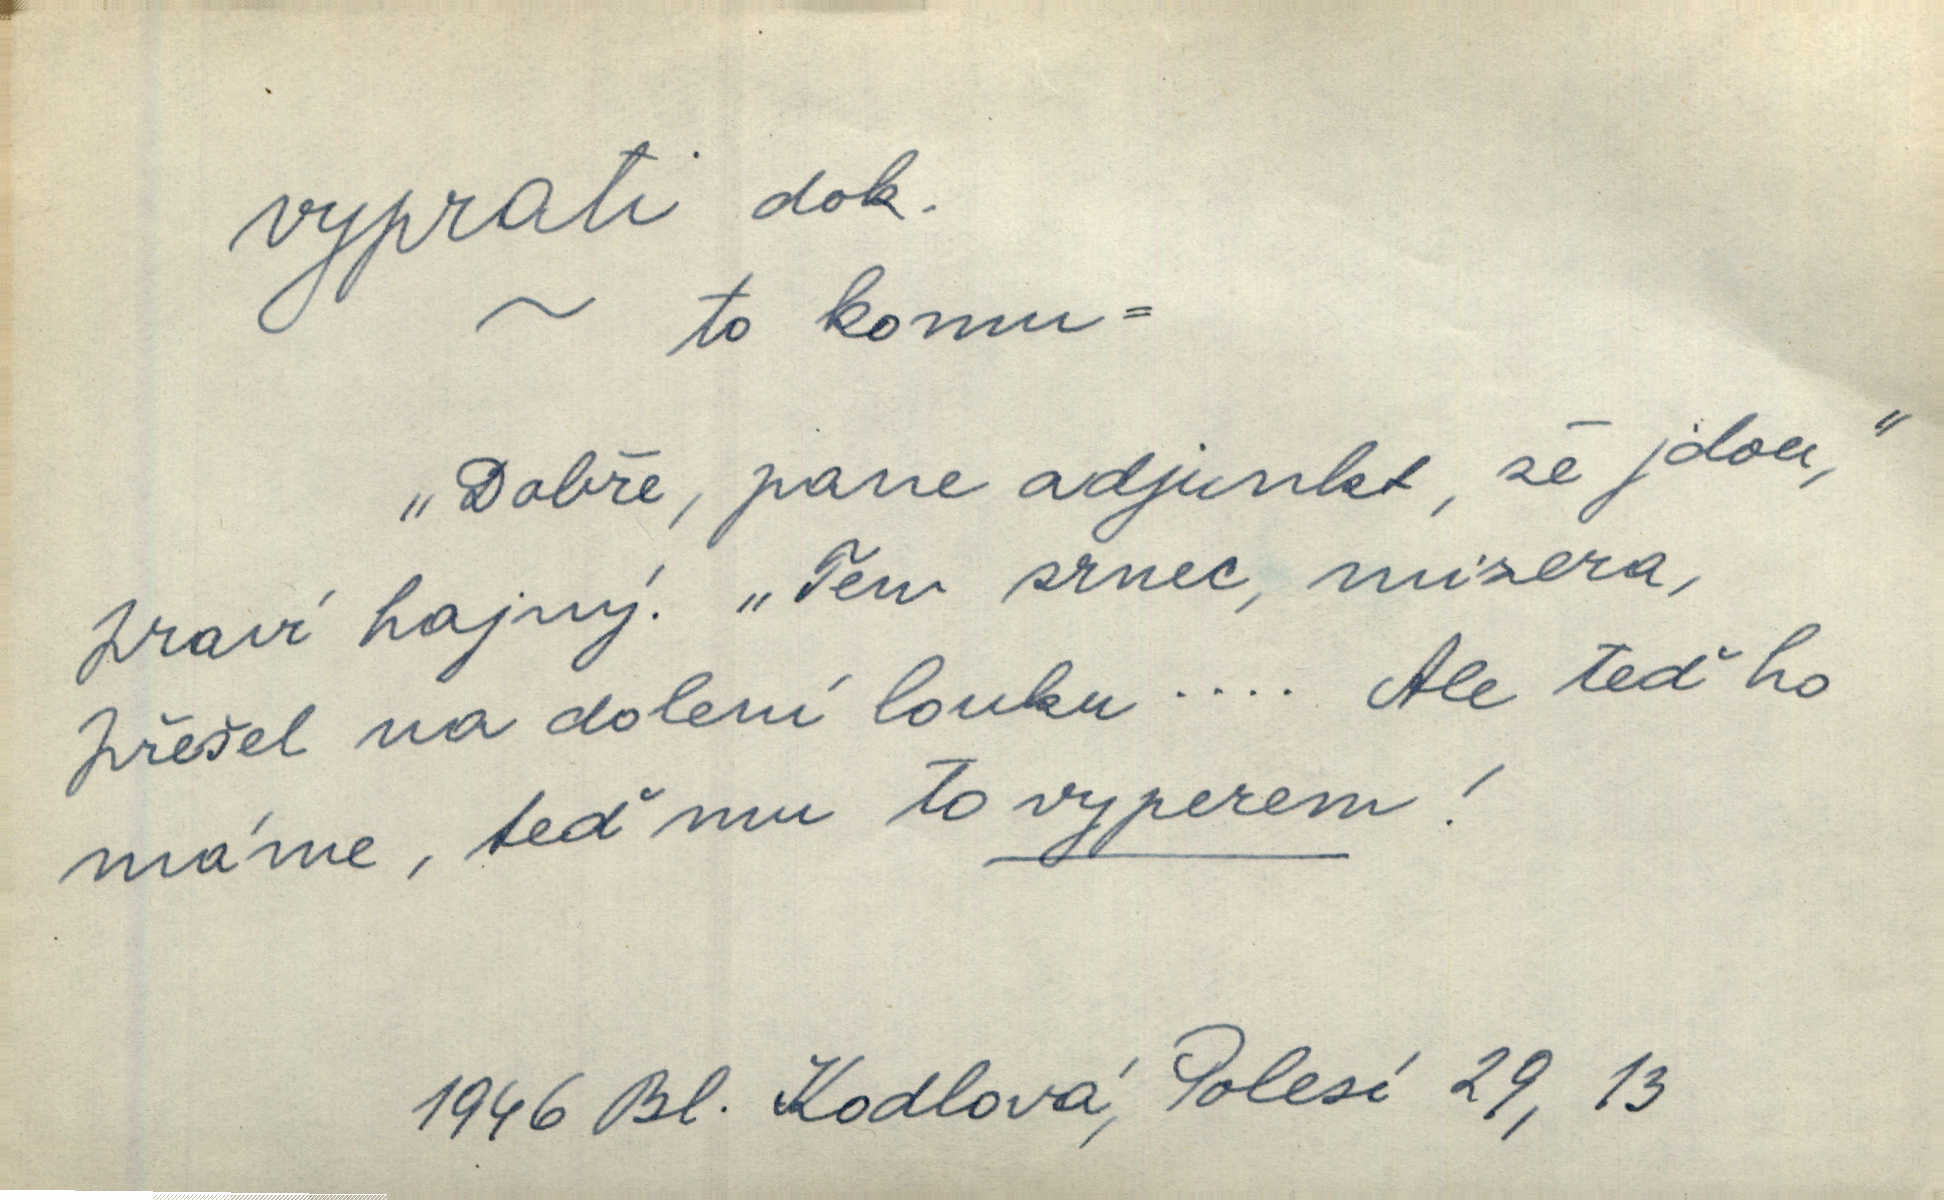 vyprati dok.
~ to komu =
„Dobře, pane adjunkt, že jdou,"
praví hajný. „Ten srnec, mizera,
přešel na dolení louku .... Ale teď ho
máme, teď mu to vyperem!
1946 Bl. Kodlová, Polesí 29, 13